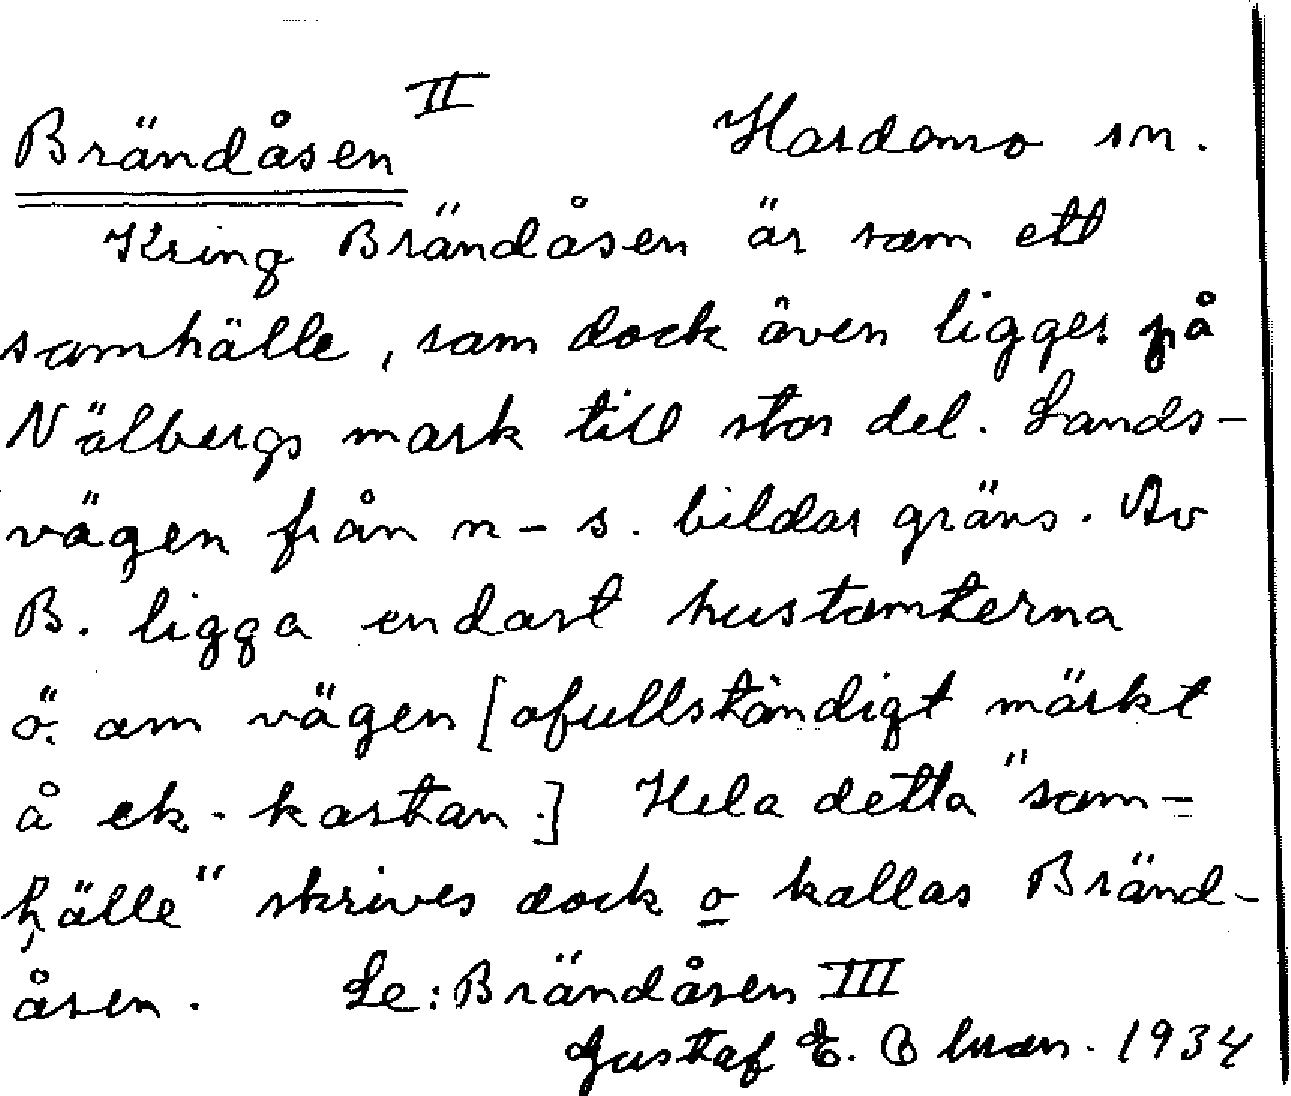 Brändåsen II Hardemo sn.
Kring Brändåsen är som ett
samhälle, som dock även ligger på
Nälbergs mark till stor del. Lands-
vägen från n-s. bildar gräns. Av
B. ligga endast hustomterna
ö. om vägen [ofullständigt märkt
å ek-kartan.] Hela detta "sam-
hälle" skrives dock o kallas Bränd-
åsen. Se: Brändåsen III
Gustaf E. 1934